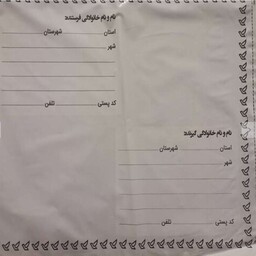 نام و نام خانوادگی فرستنده:
استان شهرستان
شهر
کد پستی تلفن
نام و نام خانوادگی گیرنده:
استان شهرستان
شهر
کد پستی تلفن